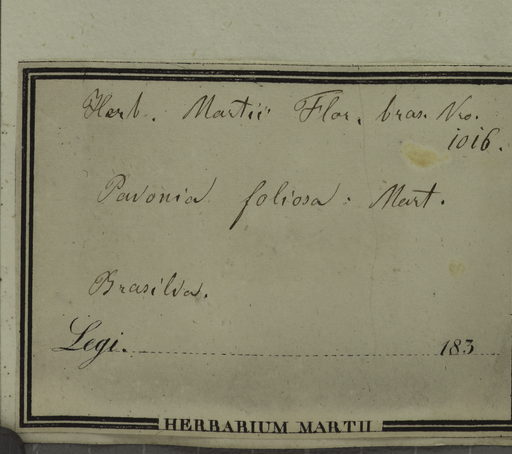 Herb. Martii Flor. bras. Nro.
1016.
Pavonia foliosa: Mart.
Brasilia.
Legi. 183
HERBARIUM MARTII